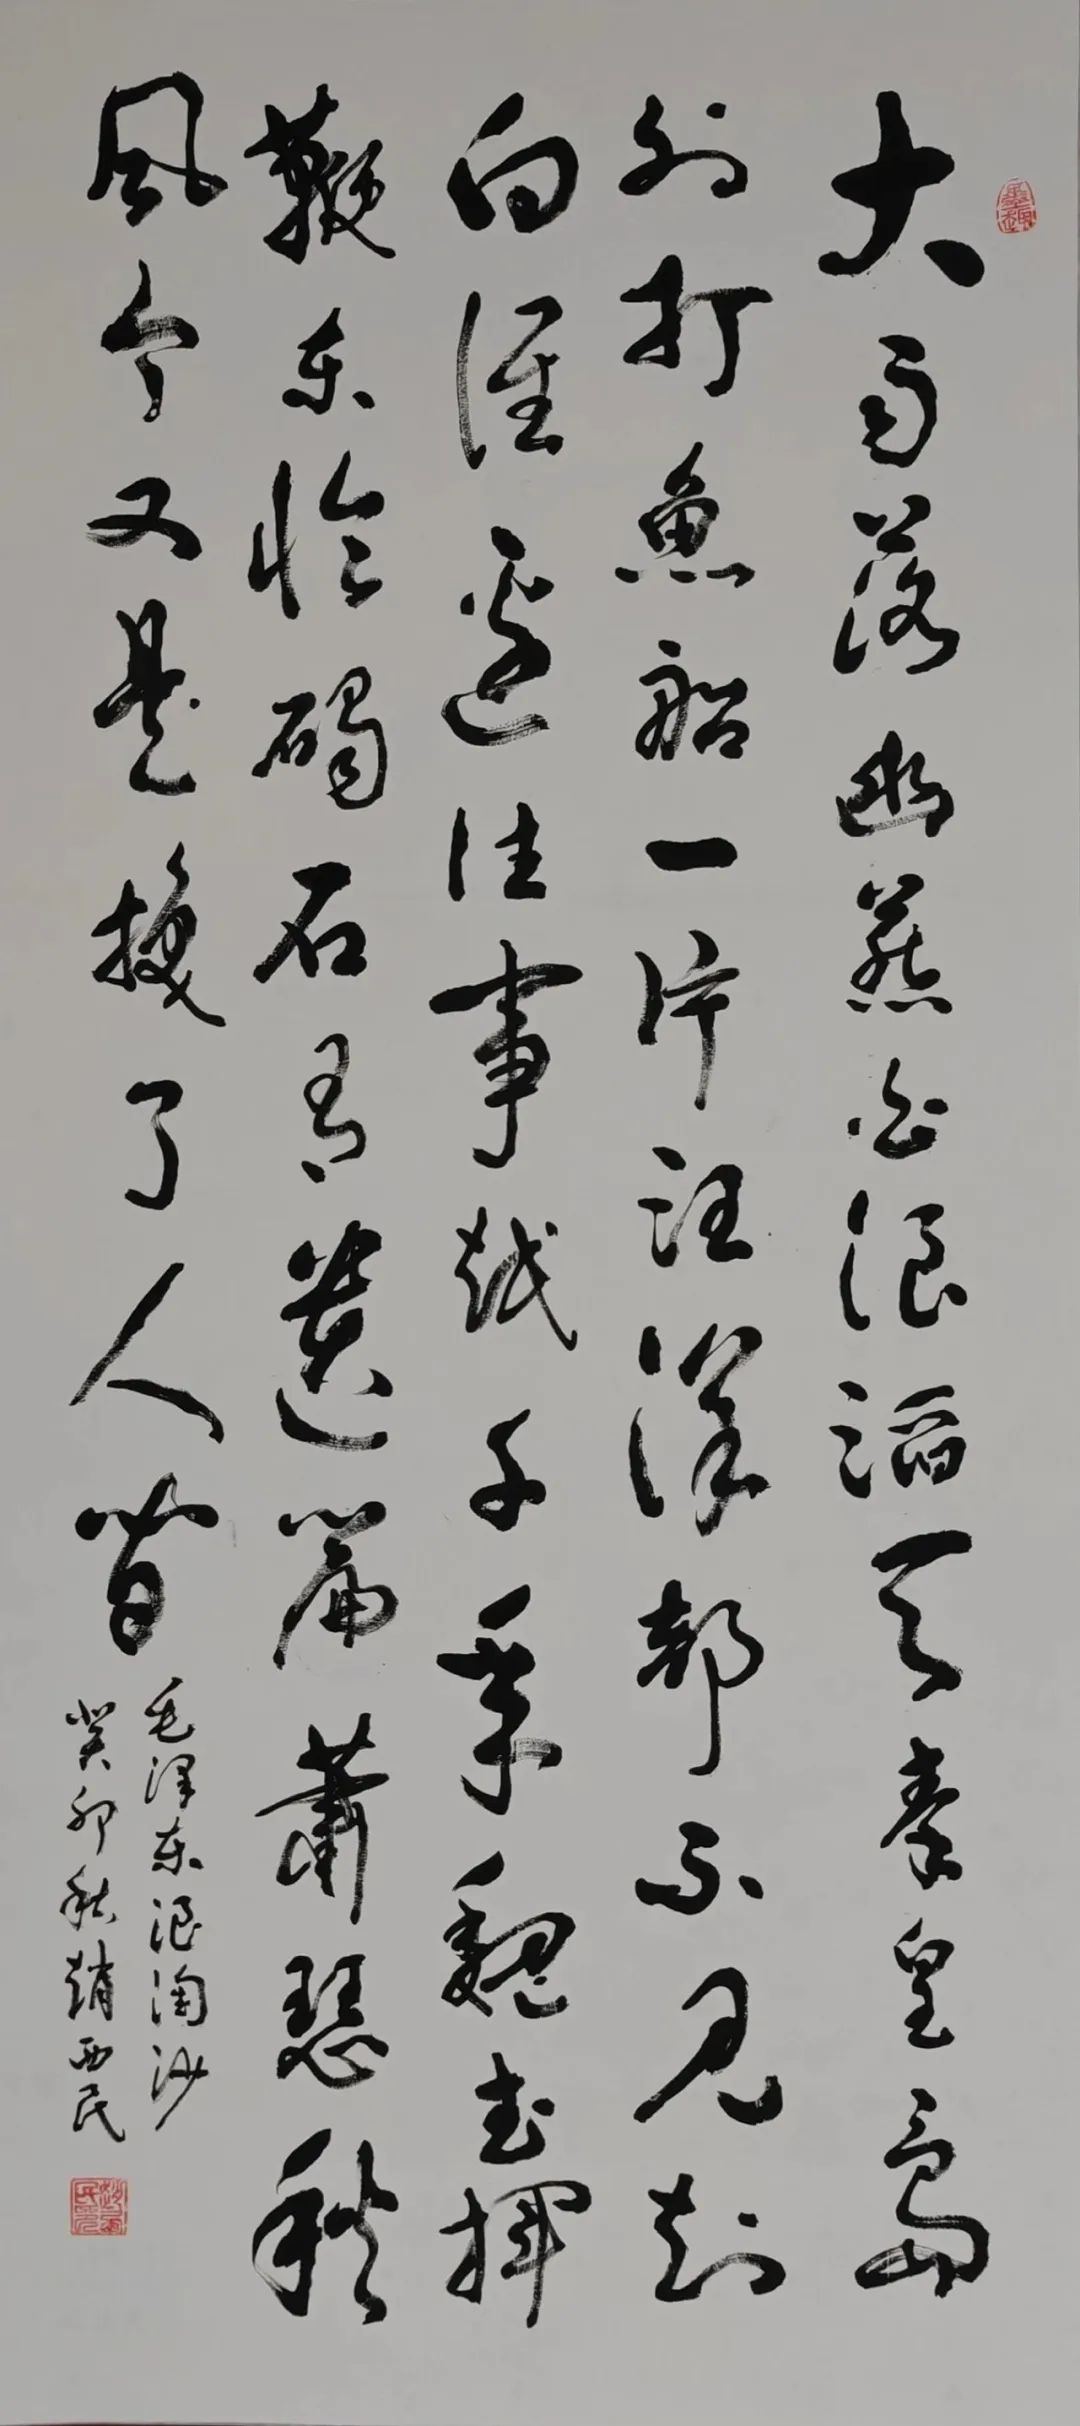 大雨落幽燕白浪滔天秦皇島
外打魚船一片汪洋都不見知
向誰邊往事越千年魏武揮
鞭东临碣石有遺篇蕭瑟秋
風今又是換了人间
毛泽东浪淘沙
癸卯秋趙西民